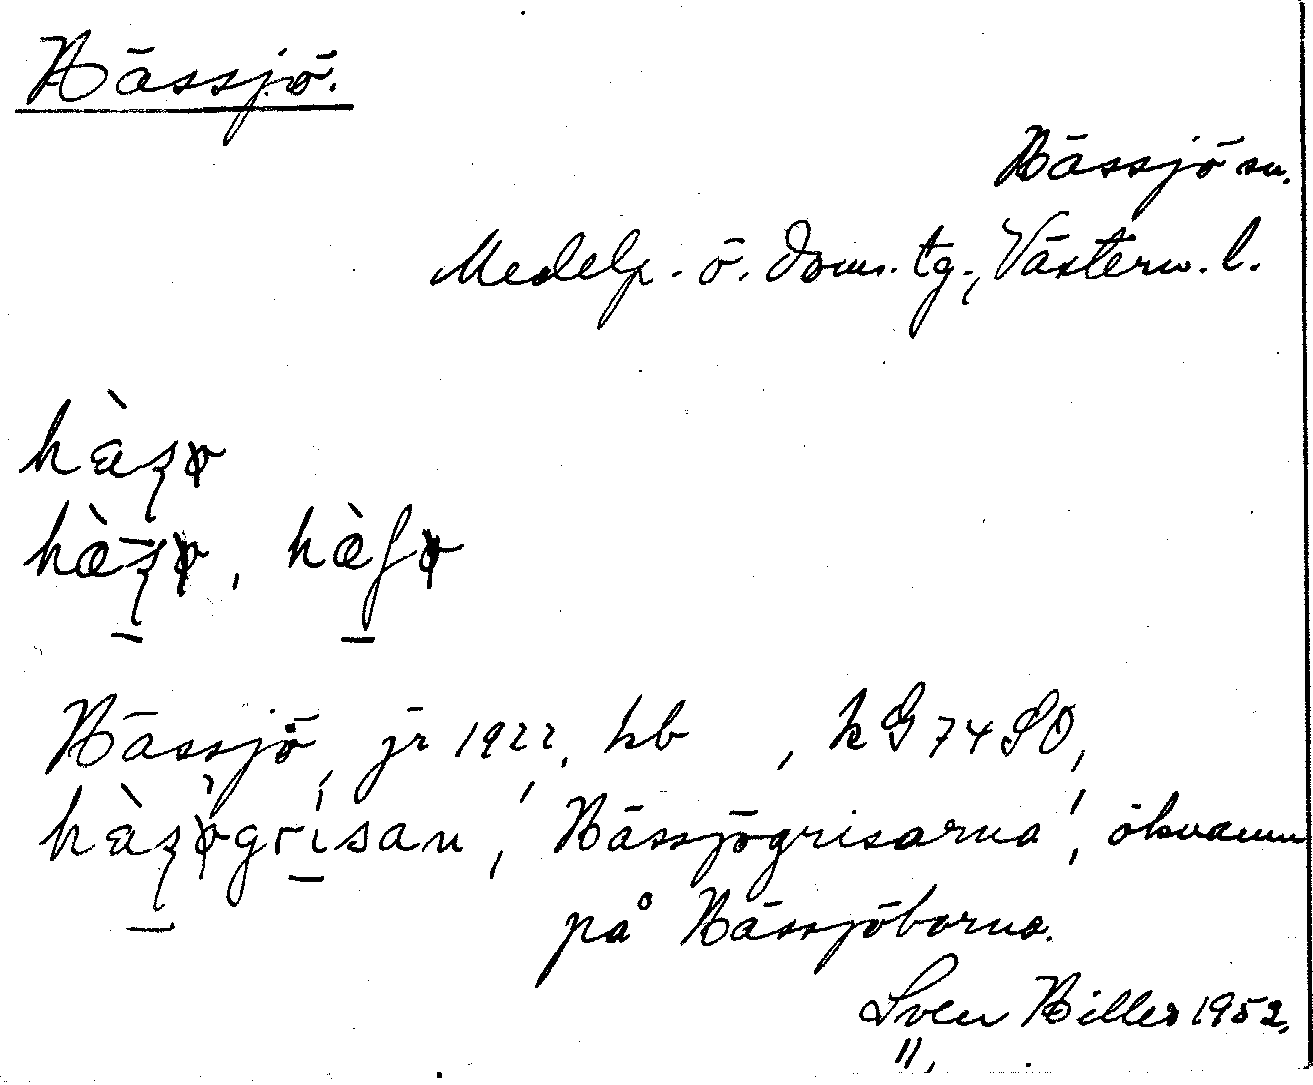 Hässjö.
Hässjö sn.
Medelp. ö. doms. tg., Västern. l.
hàʂø
hæ̀ʂø, hæ̀ʃø
Hässjö, jr 1922, hb , k G 74 SO,
hàʂøgrisan, 'Hässjögrisarna', öknamn
på Hässjöborna.
Sven Hiller 1952.